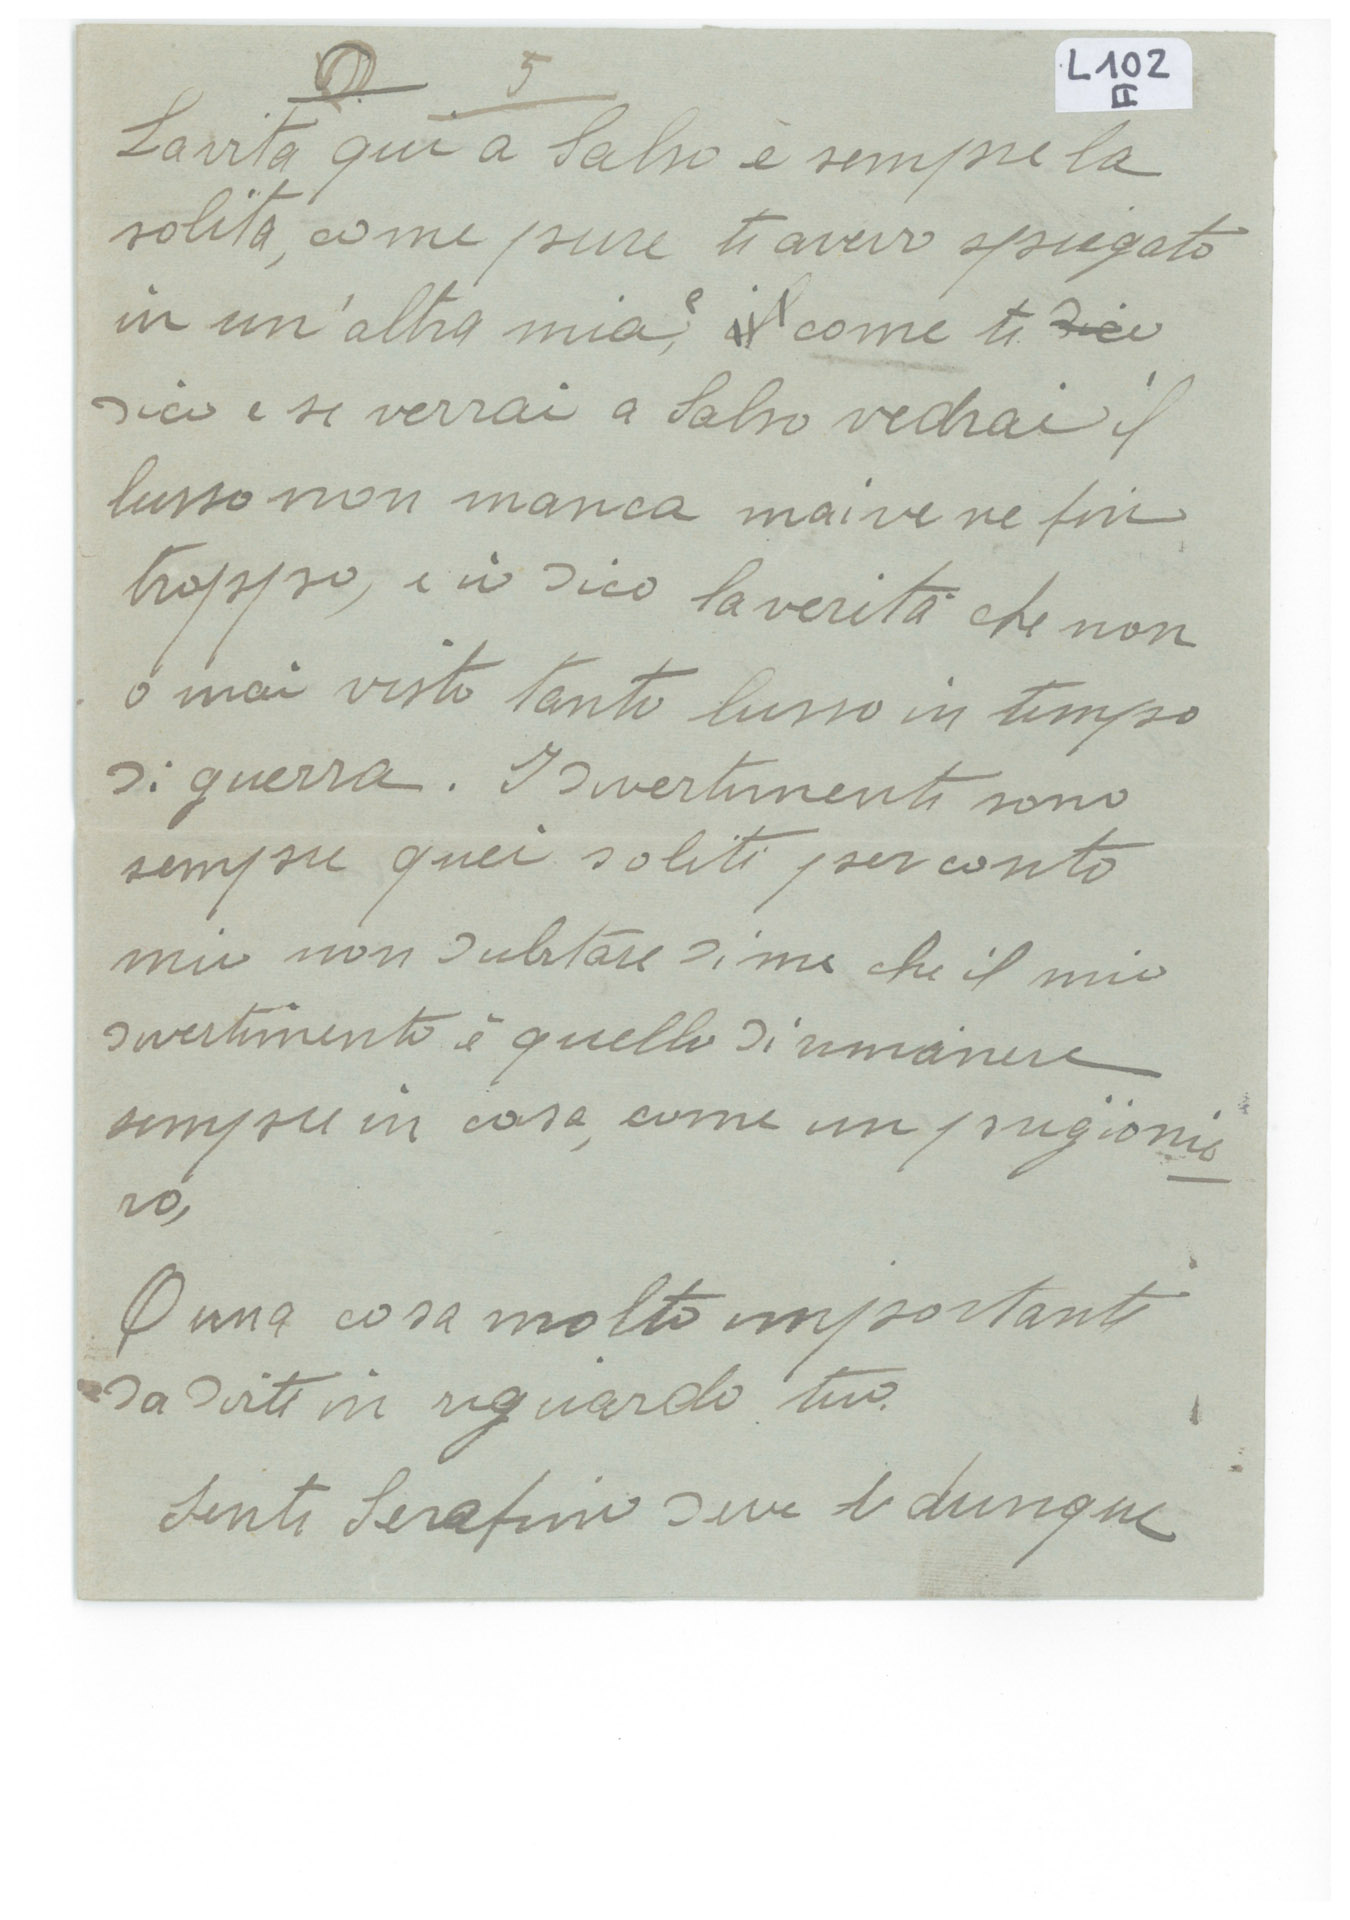 5
L102
II
La vita qui a Salso è sempre la
solita, come pure ti avevo spiegato
in un'altra mia, e il come ti dico
dico e se verrai a Salso vedrai il
lusso non manca mai ve ne fin
troppo, e io dico la verità che non
ò mai visto tanto lusso in tempo
di guerra. I divertimenti sono
sempre quei soliti per conto
mio non dubitare di me che il mio
divertimento è quello di rimanere
sempre in casa, come un prigionie
ro,
O una cosa molto importante
da dirti in riguardo tuo.
Senti Serafino deve dunque